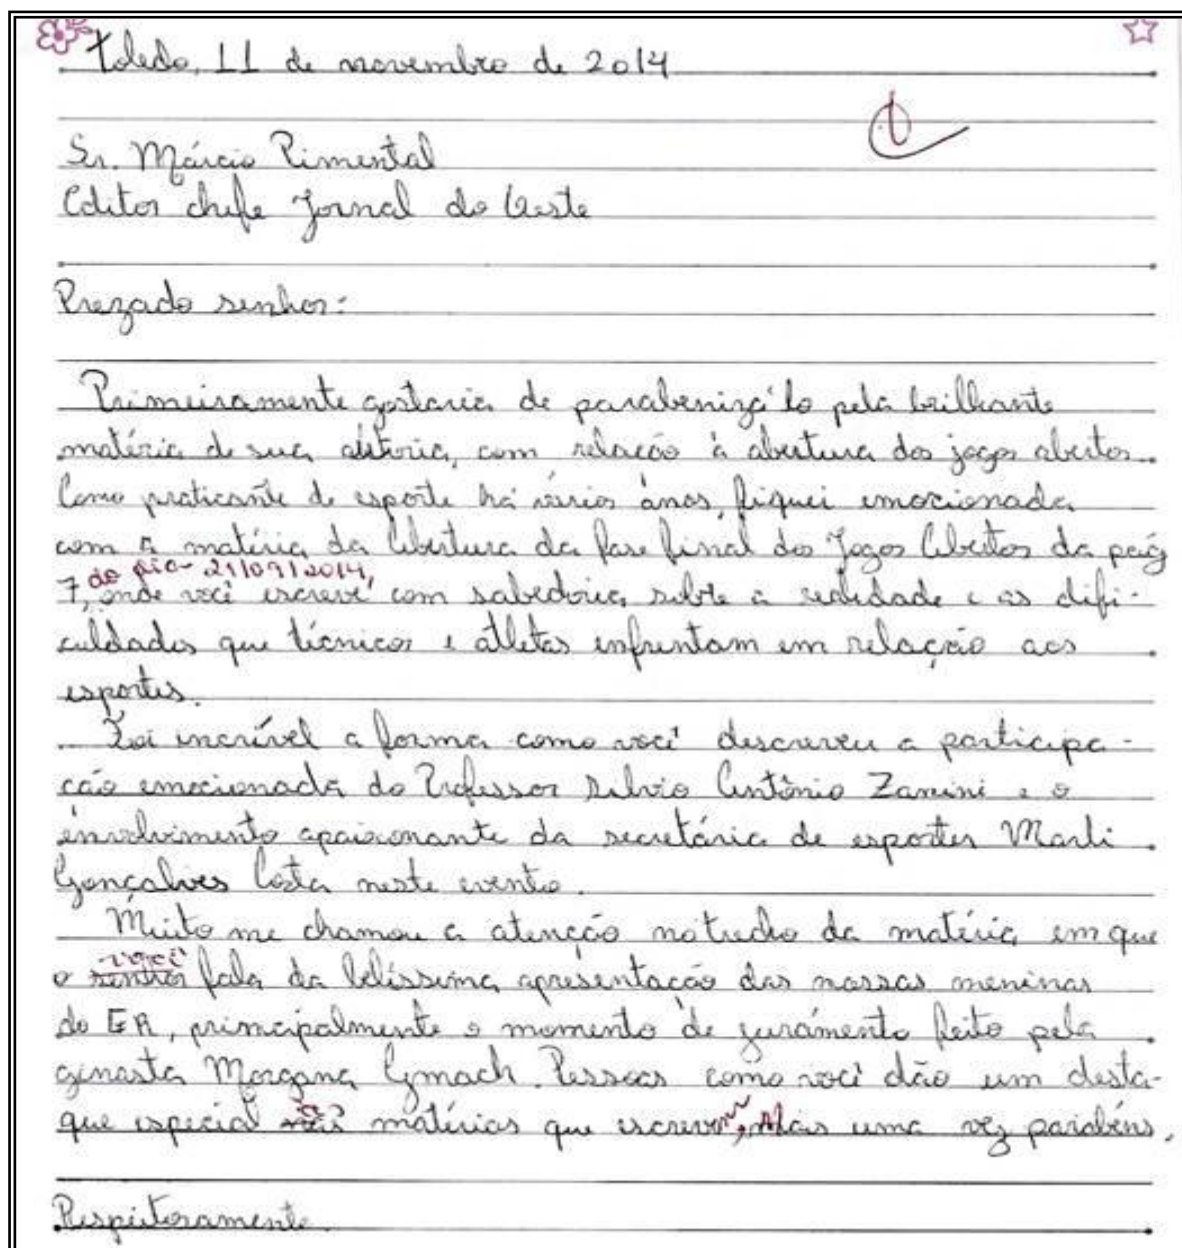 Toledo, 11 de novembro de 2014
Sr. Márcio Pimental
Editor chefe Jornal do Oeste
Prezado senhor:
Primeiramente gostaria de parabenizá-lo pela brilhante
matéria de sua autoria, com relação à abertura dos jogos abertos.
Como praticante de esporte há vários anos, fiquei emocionada
com a matéria da Abertura da fase final dos Jogos Abertos da pág
do dia 21/09/2014,
7, onde você escreve com sabedoria sobre a realidade e as difi-
culdades que técnicos e atletas enfrentam em relação aos
esportes.
Foi incrível a forma como você descreveu a participa-
ção emocionada do Professor Silvio Antônio Zanini e o
envolvimento apaixonante da secretária de esportes Marli
Gonçalves Costa neste evento.
Muito me chamou a atenção no trecho da matéria em que
você
o senhor fala da belíssima apresentação das nossas meninas
do GR, principalmente o momento de juramento feito pela
ginasta Morgana Gmach. Pessoas como você dão um desta-
que especial matérias que escrevem, Mais uma vez parabéns.
Respeitosamente.